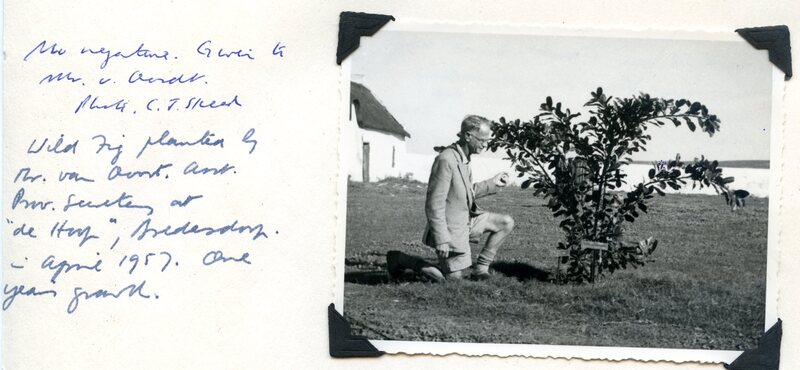 No negative. Given to
Mr. v. Oordt.
Photo. C.J. Skead
Wild Fig planted by
Mr. van Oordt. Asst.
Prov. Secretary at
"de Hoop", Bredasdorp.
in April 1957. One
years growth.